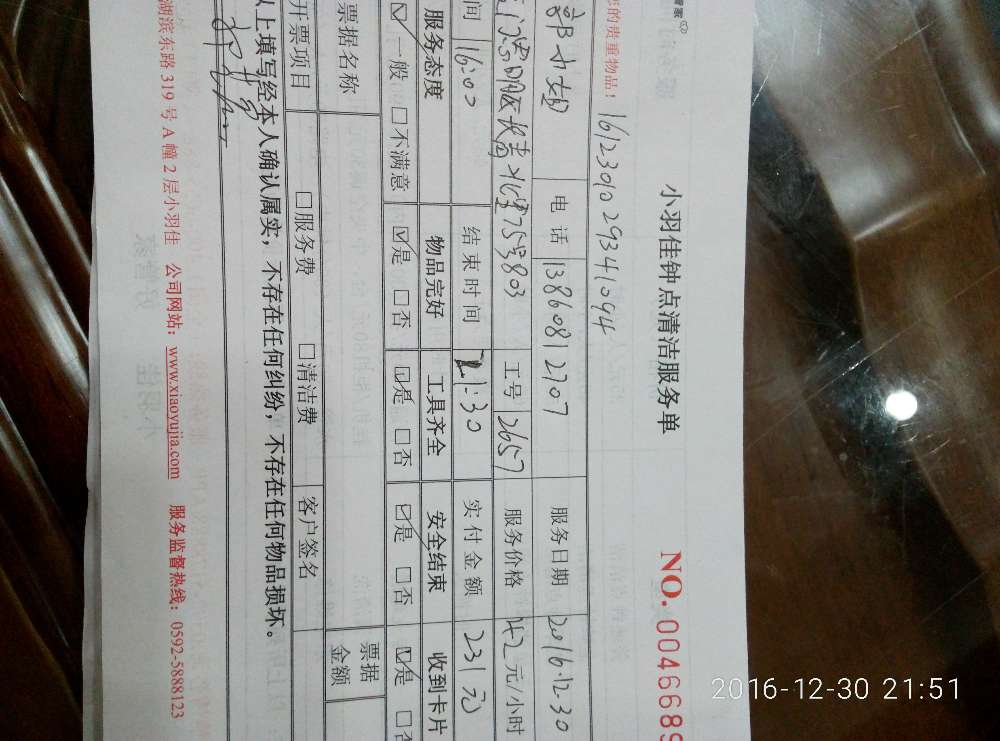 小羽佳钟点清洁服务单
NO. 0046689
您的贵重物品! 1612301029341094
电话 13860812707 服务日期 2016.12.30
工号 2657 服务价格 42元/小时
间 16:00 结束时间 21:30 实付金额 231元
服务态度 物品完好 工具齐全 安全结束 收到卡片
☑一般 □不满意 ☑是 □否 ☑是 □否 ☑是 □否 ☑是 □否
票据名称 票据金额
开票项目 □服务费 □清洁费 客户签名
以上填写经本人确认属实,不存在任何纠纷,不存在任何物品损坏。
湖滨东路319号A幢2层小羽佳 公司网站:www.xiaoyujia.com 服务监督热线:0592-5888123
2016-12-30 21:51